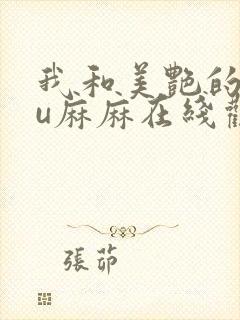 我和美艷的
u麻麻在綫觀
張茆